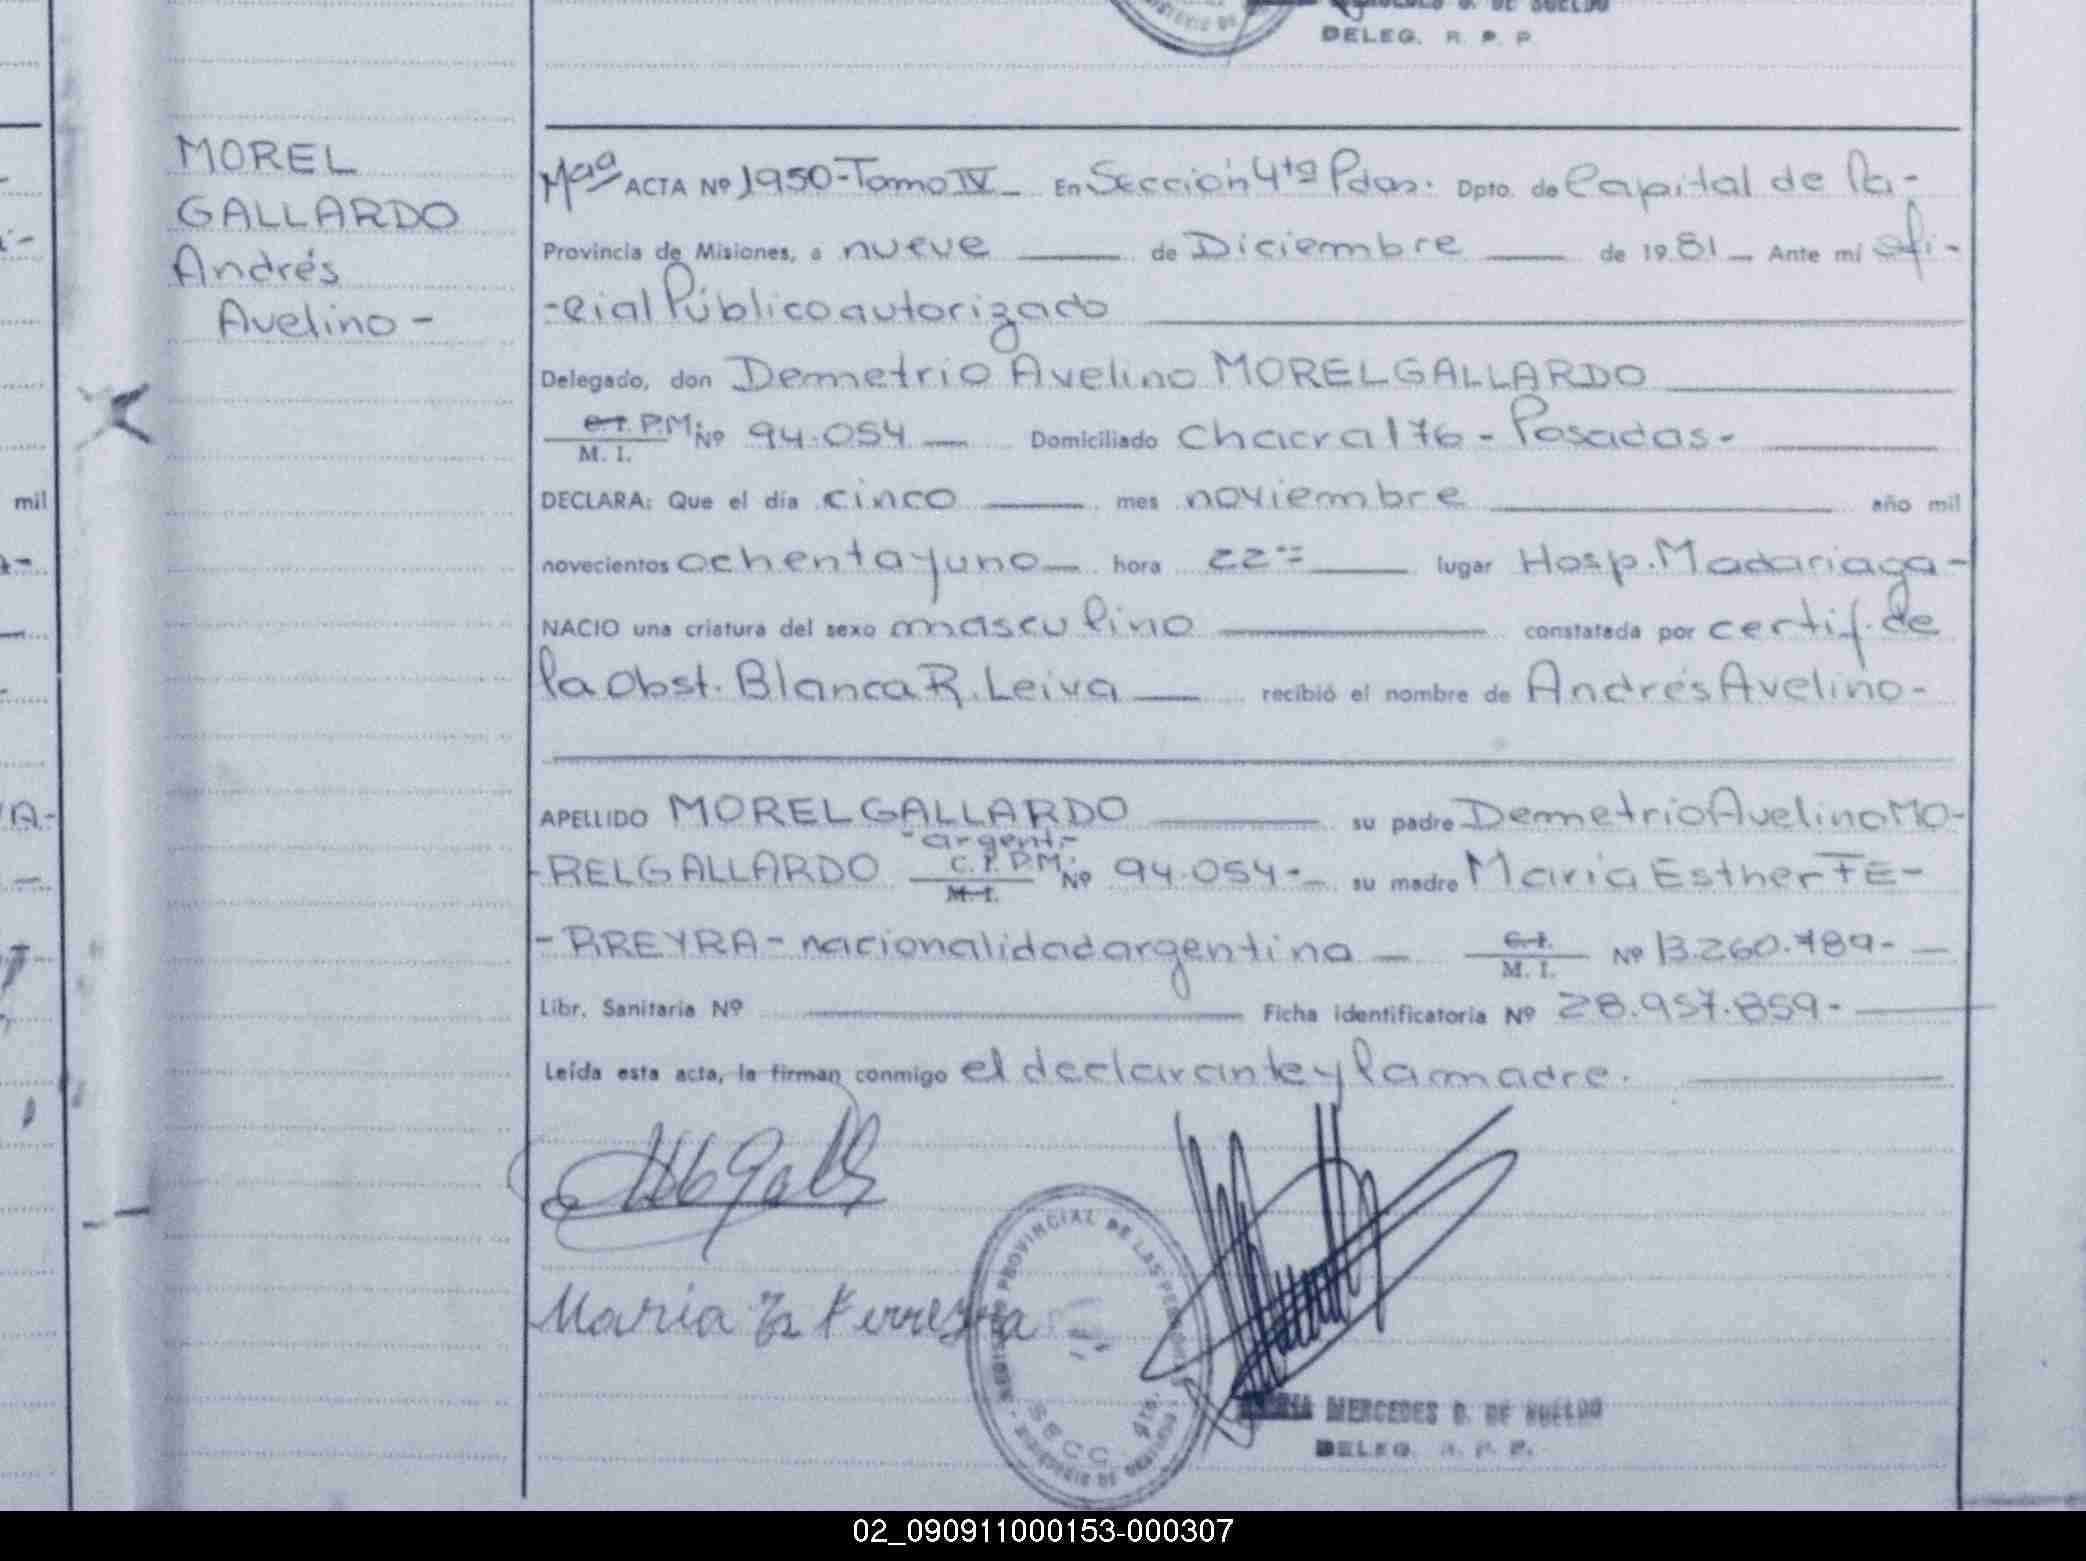 DELEG. R. P. P.
MOREL
GALLARDO
Andrés
Avelino -
ACTA Nº 1950-Tomo IV - En Sección 4ta Pdas. Dpto. de Capital de la -
Provincia de Misiones, a nueve de Diciembre de 1981 - Ante mí ofi -
-cial Público autorizado
Delegado, don Demetrio Avelino MOREL GALLARDO
C.I. P.M. Nº 94.054 Domiciliado Chacra 176 - Posadas -
M. I.
DECLARA: Que el día cinco mes noviembre año mil
novecientos ochenta y uno hora 22 lugar Hosp. Madariaga -
NACIO una criatura del sexo masculino constatada por certif. de
la Obst. Blanca R. Leiva recibió el nombre de Andrés Avelino -
APELLIDO MOREL GALLARDO su padre Demetrio Avelino MO-
-argent.-
-REL GALLARDO C.I. P.M. Nº 94.054 - su madre María Esther FE-
M. I.
-RREYRA - nacionalidad argentina - C.I. Nº 13.260.789 -
M. I.
Libr. Sanitaria Nº Ficha identificatoria Nº 28.957.859 -
Leída esta acta, la firman conmigo el declarante y la madre.
María E. Ferreyra
REGISTRO PROVINCIAL DE LAS PERSONAS
SECC. 4ta.
MERCEDES D. DE SUELDO
DELEG. R. P. P.
mil
02_090911000153-000307